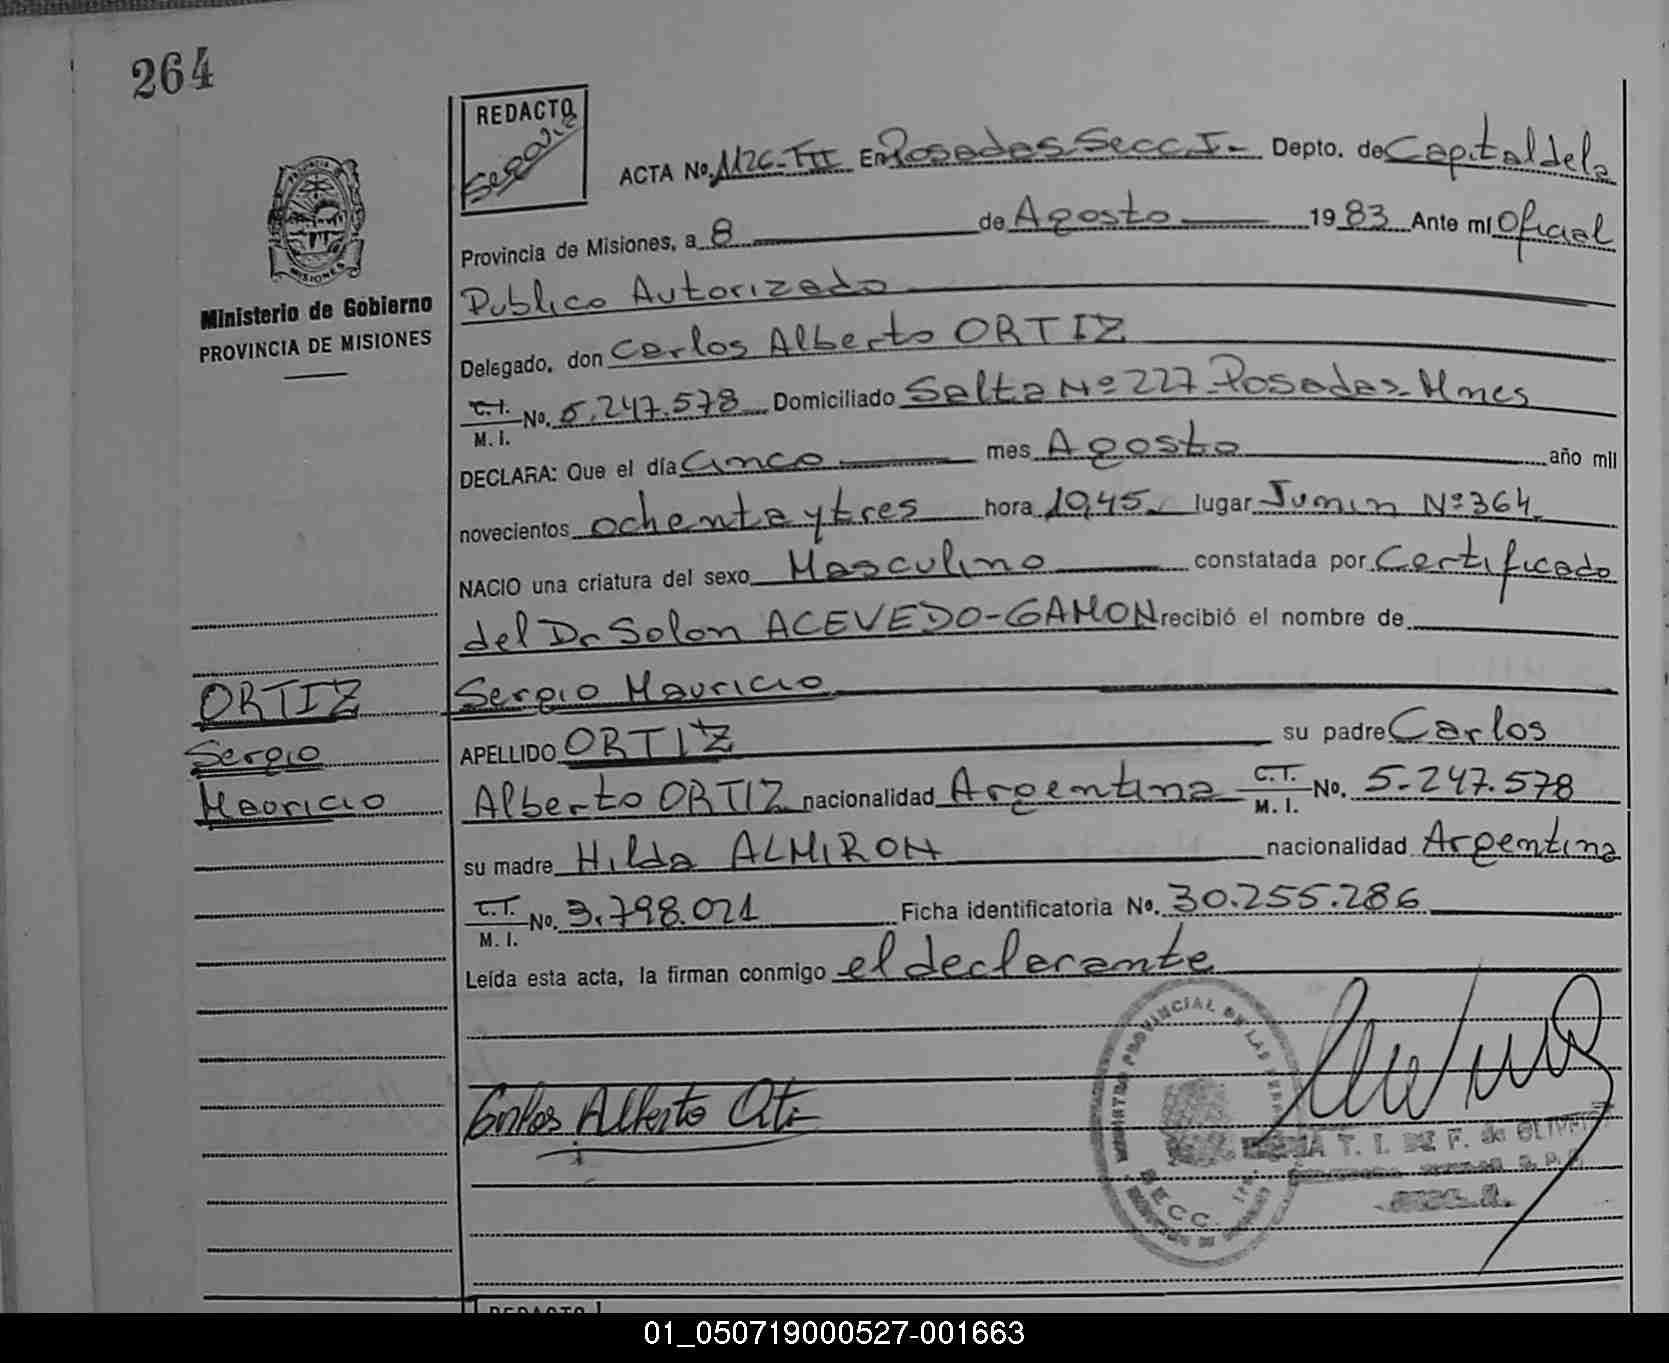 264
REDACTO
ACTA No. 1126-III En Posadas Secc. I- Depto. de Capital de la
Provincia de Misiones, a 8 de Agosto 1983 Ante mí Oficial
Publico Autorizado
Delegado, don Carlos Alberto ORTIZ
C.I. M.I. No. 5.247.578 Domiciliado Salta Nº 227-Posadas-Mnes
DECLARA: Que el día Cinco mes Agosto año mil
novecientos ochenta y tres hora 10,45 lugar Junin Nº 364
NACIO una criatura del sexo Masculino constatada por Certificado
del Dr Solon ACEVEDO-GAMON recibió el nombre de
Sergio Mauricio
APELLIDO ORTIZ su padre Carlos
Alberto ORTIZ nacionalidad Argentina C.I. M.I. No. 5.247.578
su madre Hilda ALMIRON nacionalidad Argentina
C.I. M.I. No. 3.798.021 Ficha identificatoria No. 30.255.286
Leída esta acta, la firman conmigo el declarante
Carlos Alberto Ortiz
MISIONES
Ministerio de Gobierno
PROVINCIA DE MISIONES
ORTIZ
Sergio
Mauricio
PROVINCIAL DE LAS
SECC.
T. I. DE F. de
REDACTO
01_050719000527-001663